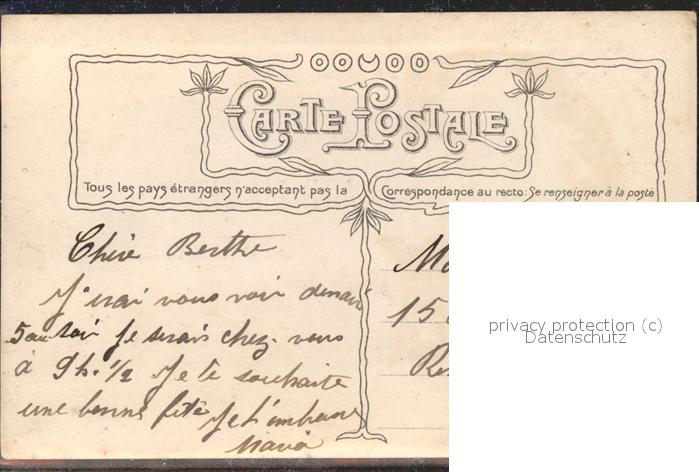 CARTE POSTALE
Tous les pays étrangers n'acceptant pas la Correspondance au recto: Se renseigner à la poste
Chère Berthe
J'irai vous voir demain
5 au soir je serais chez vous
à 9h. 1/2 Je te souhaite
une bonne fête Je t'embrasse
M
15
R
privacy protection (c)
Datenschutz